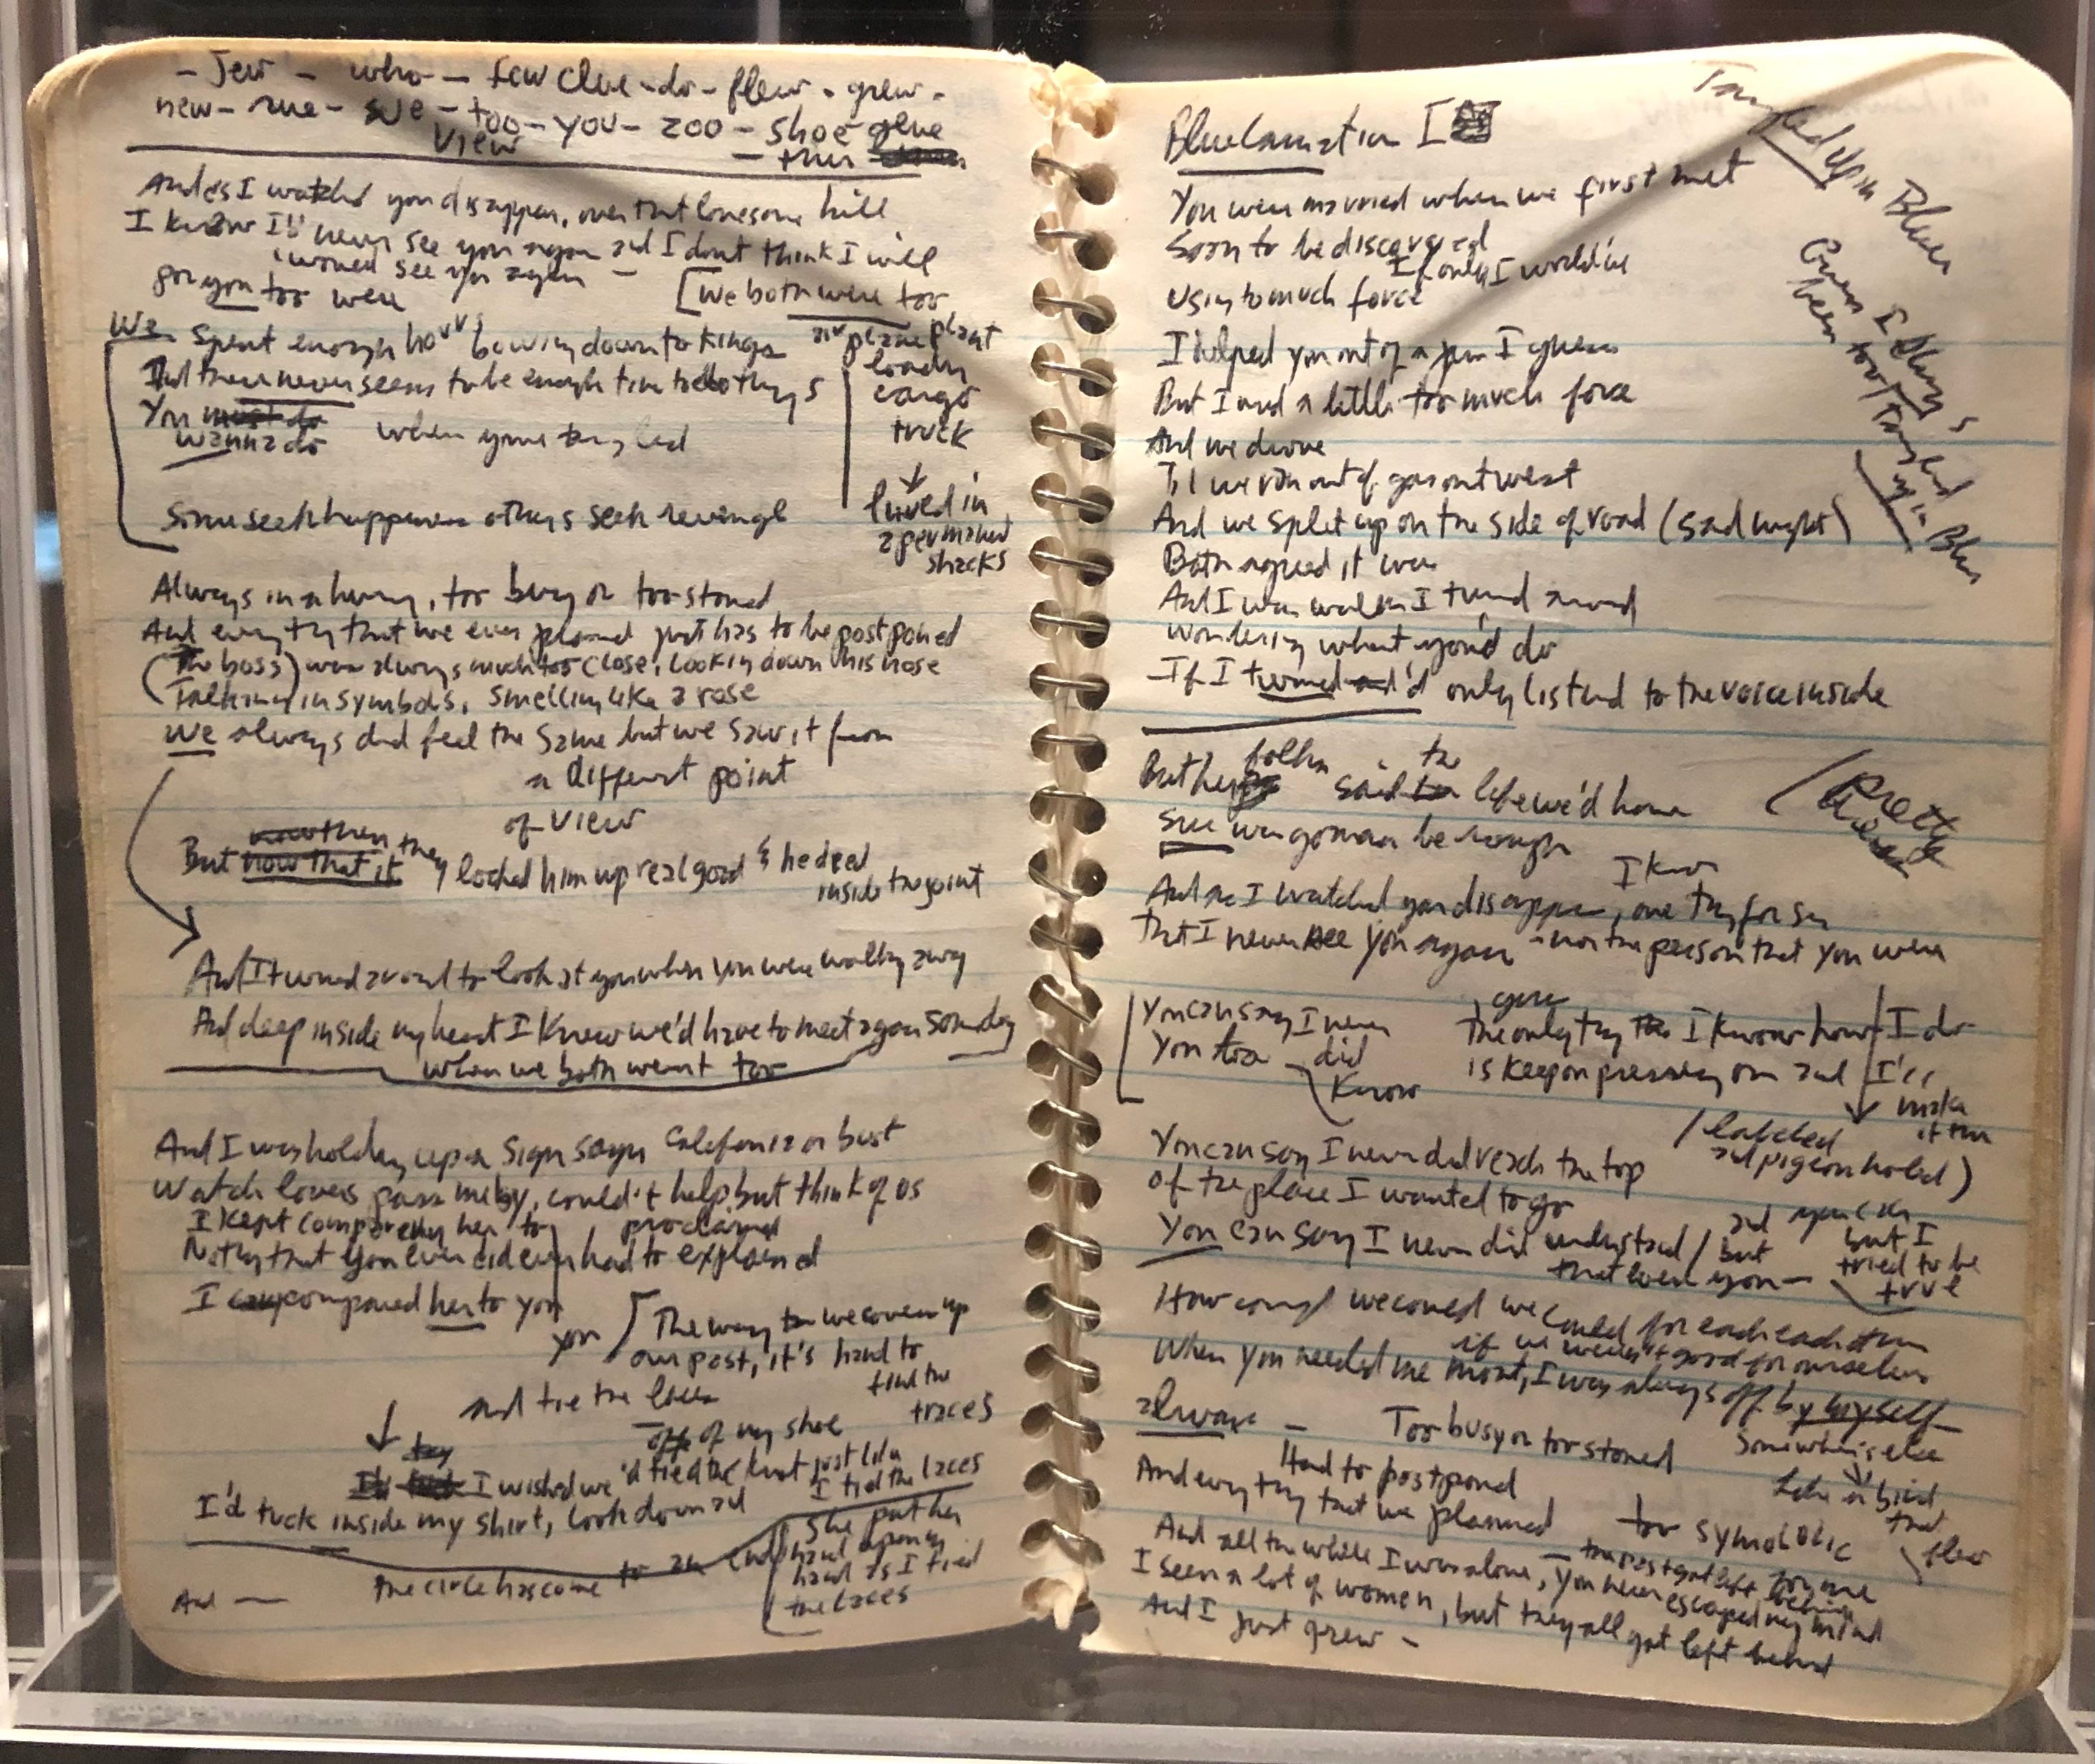 - Jew - who - few clue - do - flew - grew -
new - rue - sue - too - you - zoo - shoe glue
view - thru
And as I watched you disappear, over that lonesome hill
I know I'll never see you again and I dont think I will
see you again -
you too were [We both were too
We spent enough hours bowing down to Kings
And there never seems to be enough time to do things
You must do
wanna do when youre tangled
Some seek happiness others seek revenge
airplane plant
loadin
cargo
truck
↓
lived in
shacks
Always in a hurry, too busy or too stoned
And everything that we ever planned just has to be postponed
(The boss) was always much too close, lookin down his nose
Talking in symbols, smelling like a rose
We always did feel the same but we saw it from
a different point
of view
But now that it they locked him up real good & he died
inside the joint
And I turned around to look at you when you were walking away
And deep inside my heart I knew we'd have to meet again someday
when we both went too
And I was holding up a sign sayin California or bust
Watch lovers pass me by, could't help but think of us
I kept comparing her to proclaimed
Nothing that you ever did ever had to explained
I compared her to you
you / The way we cover up
our past, it's hard to
find the
traces
and tie the laces
off of my shoe
I wished we'd tied the knot just like
I tied the laces
I'd tuck inside my shirt, look down and
She put her
hand upon my
hand as I tied
the laces
And — the circle has come to an end
Tangled Up in Blue
Guess I always
been too / Tangled
up in Blue
Bluecarnation I
You were married when we first met
Soon to be discovered
If only I would've
Using to much force
I helped you out of a jam I guess
But I used a little too much force
And we drove
Til we ran out of gas out west
And we split up on the side of road (sad night)
Both agreed it was
And I was walkin I turned around
wondering what you'd do
If I turned and'd only listend to the voice inside
But her folks said the life we'd have
sure was gonna be rough
(Pretty
And as I watched you disappear, one thing for sure I know
that I never see you again - nor the person that you were
You can say I never
You too - did
Know
The only thing I know how I do
is keep on pressing on and I'll
make
it thru
You can say I never did reach the top
of the place I wanted to go
/ labeled
and pigeonholed)
You can say I never did understand / but and you can
that even you - but I
tried to be
true
How could we could for each other
if we weren't good for ourselves
When you needed me most, I was always off by myself
always - Too busy or too stoned
Somewheres else
Had to postpond
And everything that we planned
like a bird,
that
flew
too symbolic
for me
And all the while I was alone, - the past got left behind
you never escaped my mind
I seen a lot of women, but they all got left behind
And I just grew -